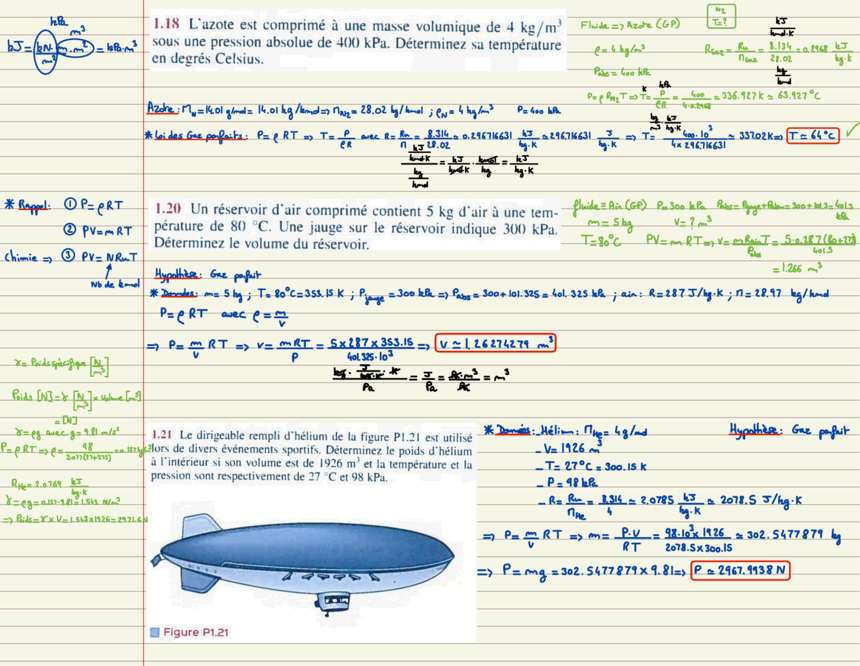 kPa
kJ = (kN/m²) · m · m² = kPa·m³
1.18 L'azote est comprimé à une masse volumique de 4 kg/m³
sous une pression absolue de 400 kPa. Déterminez sa température
en degrés Celsius.
Fluide => Azote (GP)
N₂
T=?
ρ = 4 kg/m³
Pabs = 400 kPa
kJ/kmol·K
R_Gaz = Ru/n_Gaz = 8.134/28.02 = 0.2968 kJ/kg·K
kg/kmol
P = ρ R_N2 T => T = P/ρR = 400/4·0.2968 = 336.927 K ≃ 63.927°C
kg/m³ · kJ/kg·K
Azote : M_N = 14.01 g/mol = 14.01 kg/kmol => M_N2 = 28.02 kg/kmol ; ρ_N = 4 kg/m³ P = 400 kPa
* Loi des Gaz parfaits : P = ρ RT => T = P/ρR avec R = Ru/M = 8.314/28.02 ≃ 0.296716631 kJ/kg·K ≃ 296.716631 J/kg·K => T = 400·10³/4 x 296.716631 ≃ 337.02 K => T ≃ 64°C ✓
kJ/kmol·K / kg/kmol = kJ/kmol·K · kmol/kg = kJ/kg·K
* Rappel : ① P = ρRT
② PV = mRT
Chimie => ③ PV = NRuT
Nb de kmol
1.20 Un réservoir d'air comprimé contient 5 kg d'air à une tem-
pérature de 80 °C. Une jauge sur le réservoir indique 300 kPa.
Déterminez le volume du réservoir.
fluide = Air (GP) P = 300 kPa Pabs = Pgauge + Patm = 300 + 101.3 = 401.3 kPa
m = 5 kg V = ? m³
T = 80°C PV = m RT => V = m Rair T/Pabs = 5·0.287 (80+273)/401.3
= 1.266 m³
Hypothèse : Gaz parfait
* Données : m = 5 kg ; T = 80°C = 353.15 K ; Pjauge = 300 kPa => Pabs = 300 + 101.325 = 401.325 kPa ; air : R = 287 J/kg·K ; M = 28.97 kg/kmol
P = ρ RT avec ρ = m/V
=> P = m/V RT => V = mRT/P = 5 x 287 x 353.15/401.325·10³ => V ≃ 1.26274279 m³
kg · J/kg·K · K / Pa = J/Pa = Pa·m³/Pa = m³
γ = Poids spécifique [N/m³]
Poids [N] = γ [N/m³] x Volume [m³]
= [N]
γ = ρg avec g = 9.81 m/s²
P = ρ RT => ρ = 98/2.077(27+273) = 0.157 kg/m³
R_He = 2.0769 kJ/kg·K
γ = ρg = 0.157·9.81 = 1.543 N/m³
=> Poids = γ x V = 1.543 x 1926 = 2971.6 N
1.21 Le dirigeable rempli d'hélium de la figure P1.21 est utilisé
lors de divers événements sportifs. Déterminez le poids d'hélium
à l'intérieur si son volume est de 1926 m³ et la température et la
pression sont respectivement de 27 °C et 98 kPa.
* Données : _ Hélium : M_He = 4 g/mol Hypothèse : Gaz parfait
_ V = 1926 m³
_ T = 27°C = 300.15 K
_ P = 98 kPa
_ R = Ru/M_He = 8.314/4 ≃ 2.0785 kJ/kg·K ≃ 2078.5 J/kg·K
=> P = m/V RT => m = P·V/RT = 98·10³ x 1926/2078.5 x 300.15 ≃ 302.5477879 kg
=> P = mg = 302.5477879 x 9.81 => P ≃ 2967.9938 N
Figure P1.21